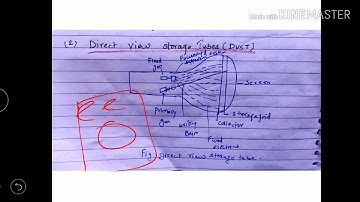 Made with KINEMASTER
(2) Direct view storage Tubes (DVST)
Flood
Gun
Screen
Primary
Gun
writing
Beam
storage grid
collector
Flood
electrons
Fig. Direct view storage tube.